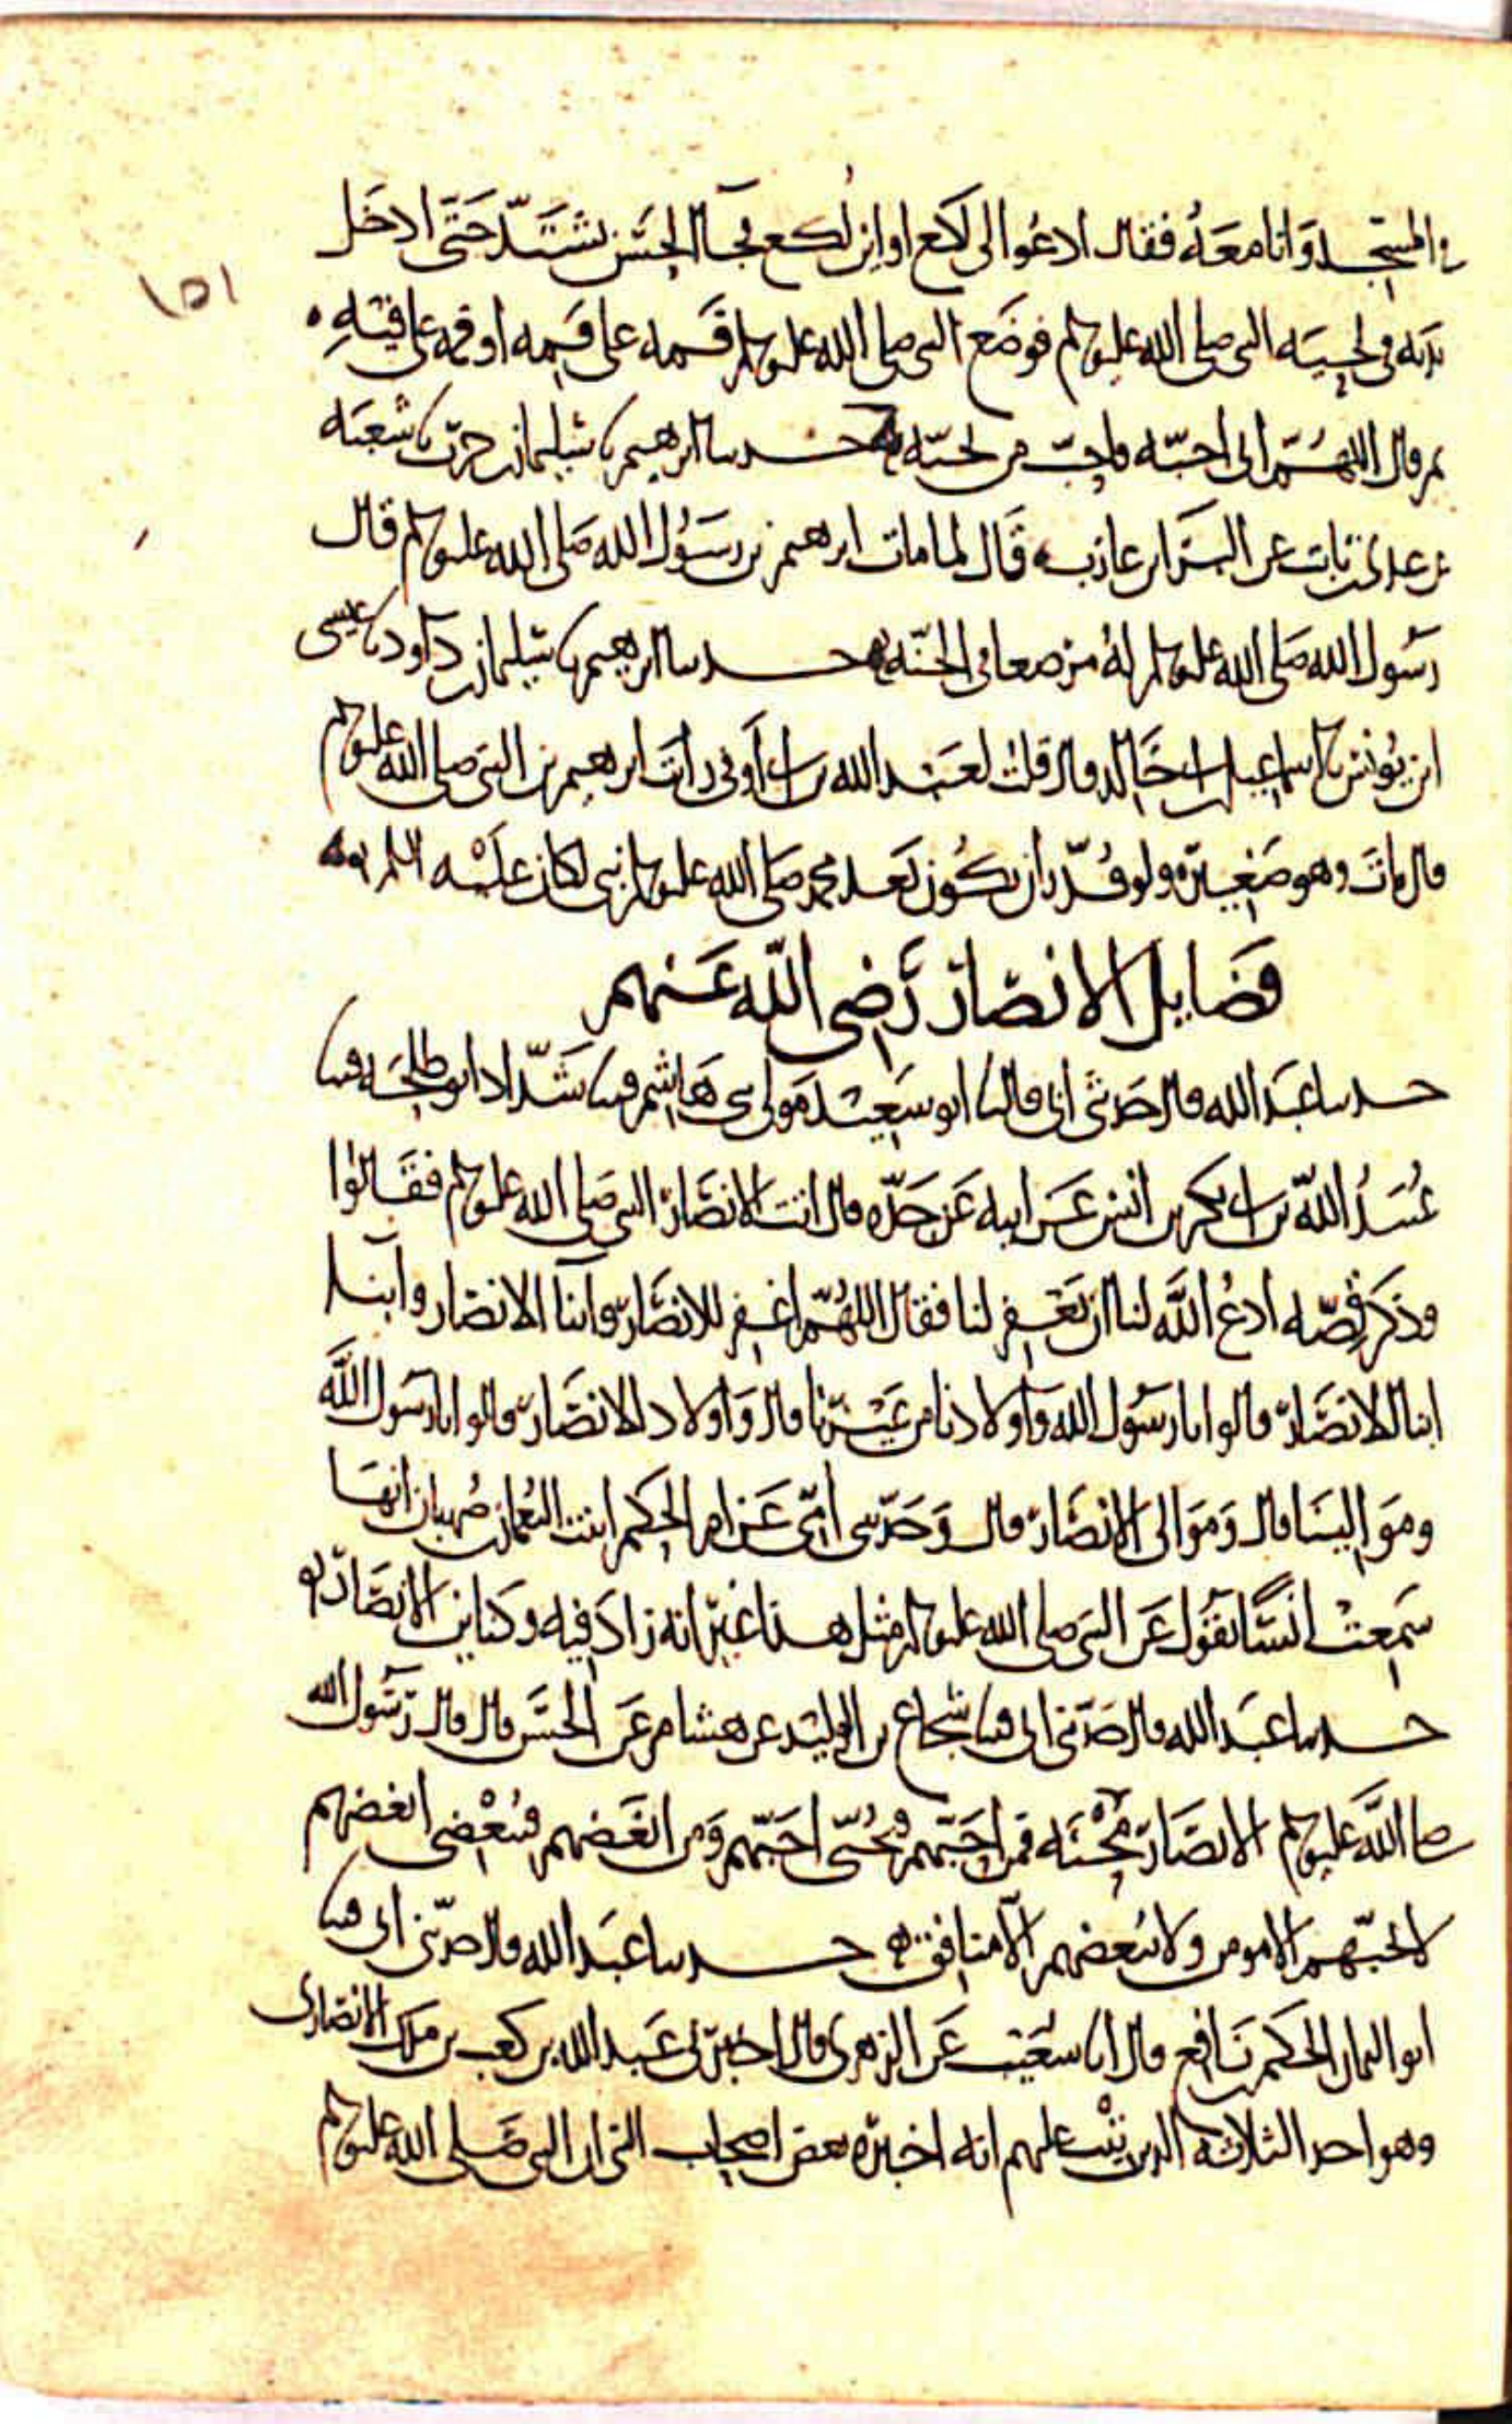 في المسجد وانا معه فقال ادعوا لي لكع او اين لكع فجا الحسن يشتد حتى ادخل
١٥١
يديه في لحية النبي صلى الله عليه وسلم فوضع النبي صلى الله عليه وسلم فمه على فمه او فمه على فيه
ثم قال اللهم اني احبه فاحب من يحبه حدثنا ابرهيم نا سليمان بن حرب نا شعبة
عن عدي بن ثابت عن البراء بن عازب قال لما مات ابرهيم بن رسول الله صلى الله عليه وسلم قال
رسول الله صلى الله عليه وسلم له مرضعا في الجنة حدثنا ابرهيم نا سليمان بن داود نا عيسى
ابن يونس نا اسماعيل بن ابي خالد قال قلت لعبد الله بن ابي اوفى رايت ابرهيم بن النبي صلى الله عليه وسلم
قال مات وهو صغير ولو قدر ان يكون بعد محمد صلى الله عليه وسلم نبي لكان عليه
فضايل الانصار رضي الله عنهم
حدثنا عبد الله قال حدثني ابي قال نا ابو سعيد مولى بني هاشم قثنا شداد ابو طلحة قثنا
عبيد الله بن ابي بكر بن انس عن ابيه عن جده قال اتت الانصار النبي صلى الله عليه وسلم فقالوا
وذكر قصة ادع الله لنا ان يغفر لنا فقال اللهم اغفر للانصار وابنا الانصار وابنا
ابنا الانصار قالوا يا رسول الله واولادنا من غيرنا قال واولاد الانصار قالوا يا رسول الله
وموالينا قال وموالي الانصار قال وحدثتني امي عن ام الحكم ابنت النعمان بن صهبان انها
سمعت انسا يقول عن النبي صلى الله عليه وسلم مثل هذا غير انه زاد فيه وكناين الانصار
حدثنا عبد الله قال حدثني ابي قثنا شجاع بن الوليد عن هشام عن الحسن قال قال رسول الله
صلى الله عليه وسلم الانصار محنة فمن احبهم فبحبي احبهم ومن ابغضهم فببغضي ابغضهم
لا يحبهم الا مومن ولا يبغضهم الا منافق حدثنا عبد الله قال حدثني ابي قثنا
ابو اليمان الحكم بن نافع قال انا شعيب عن الزهري قال اخبرني عبد الله بن كعب بن ملك الانصاري
وهو احد الثلاثة الذين تيب عليهم انه اخبره بعض اصحاب النبي ان النبي صلى الله عليه وسلم